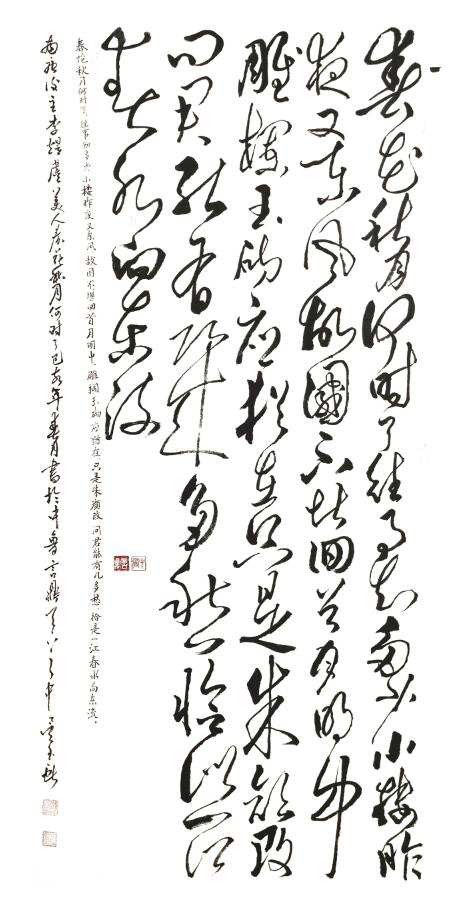 春花秋月何時了往事知多少小樓昨
夜又東風故國不堪回首月明中
雕欄玉砌應猶在只是朱顏改
問君能有幾多愁恰似一江
春水向東流
春花秋月何时了，往事知多少，小楼昨夜又东风，故国不堪回首月明中，雕栏玉砌应犹在，只是朱颜改，问君能有几多愁，恰是一江春水向东流，
南唐後主李煜虞美人春花秋月何时了己亥年春月書於中